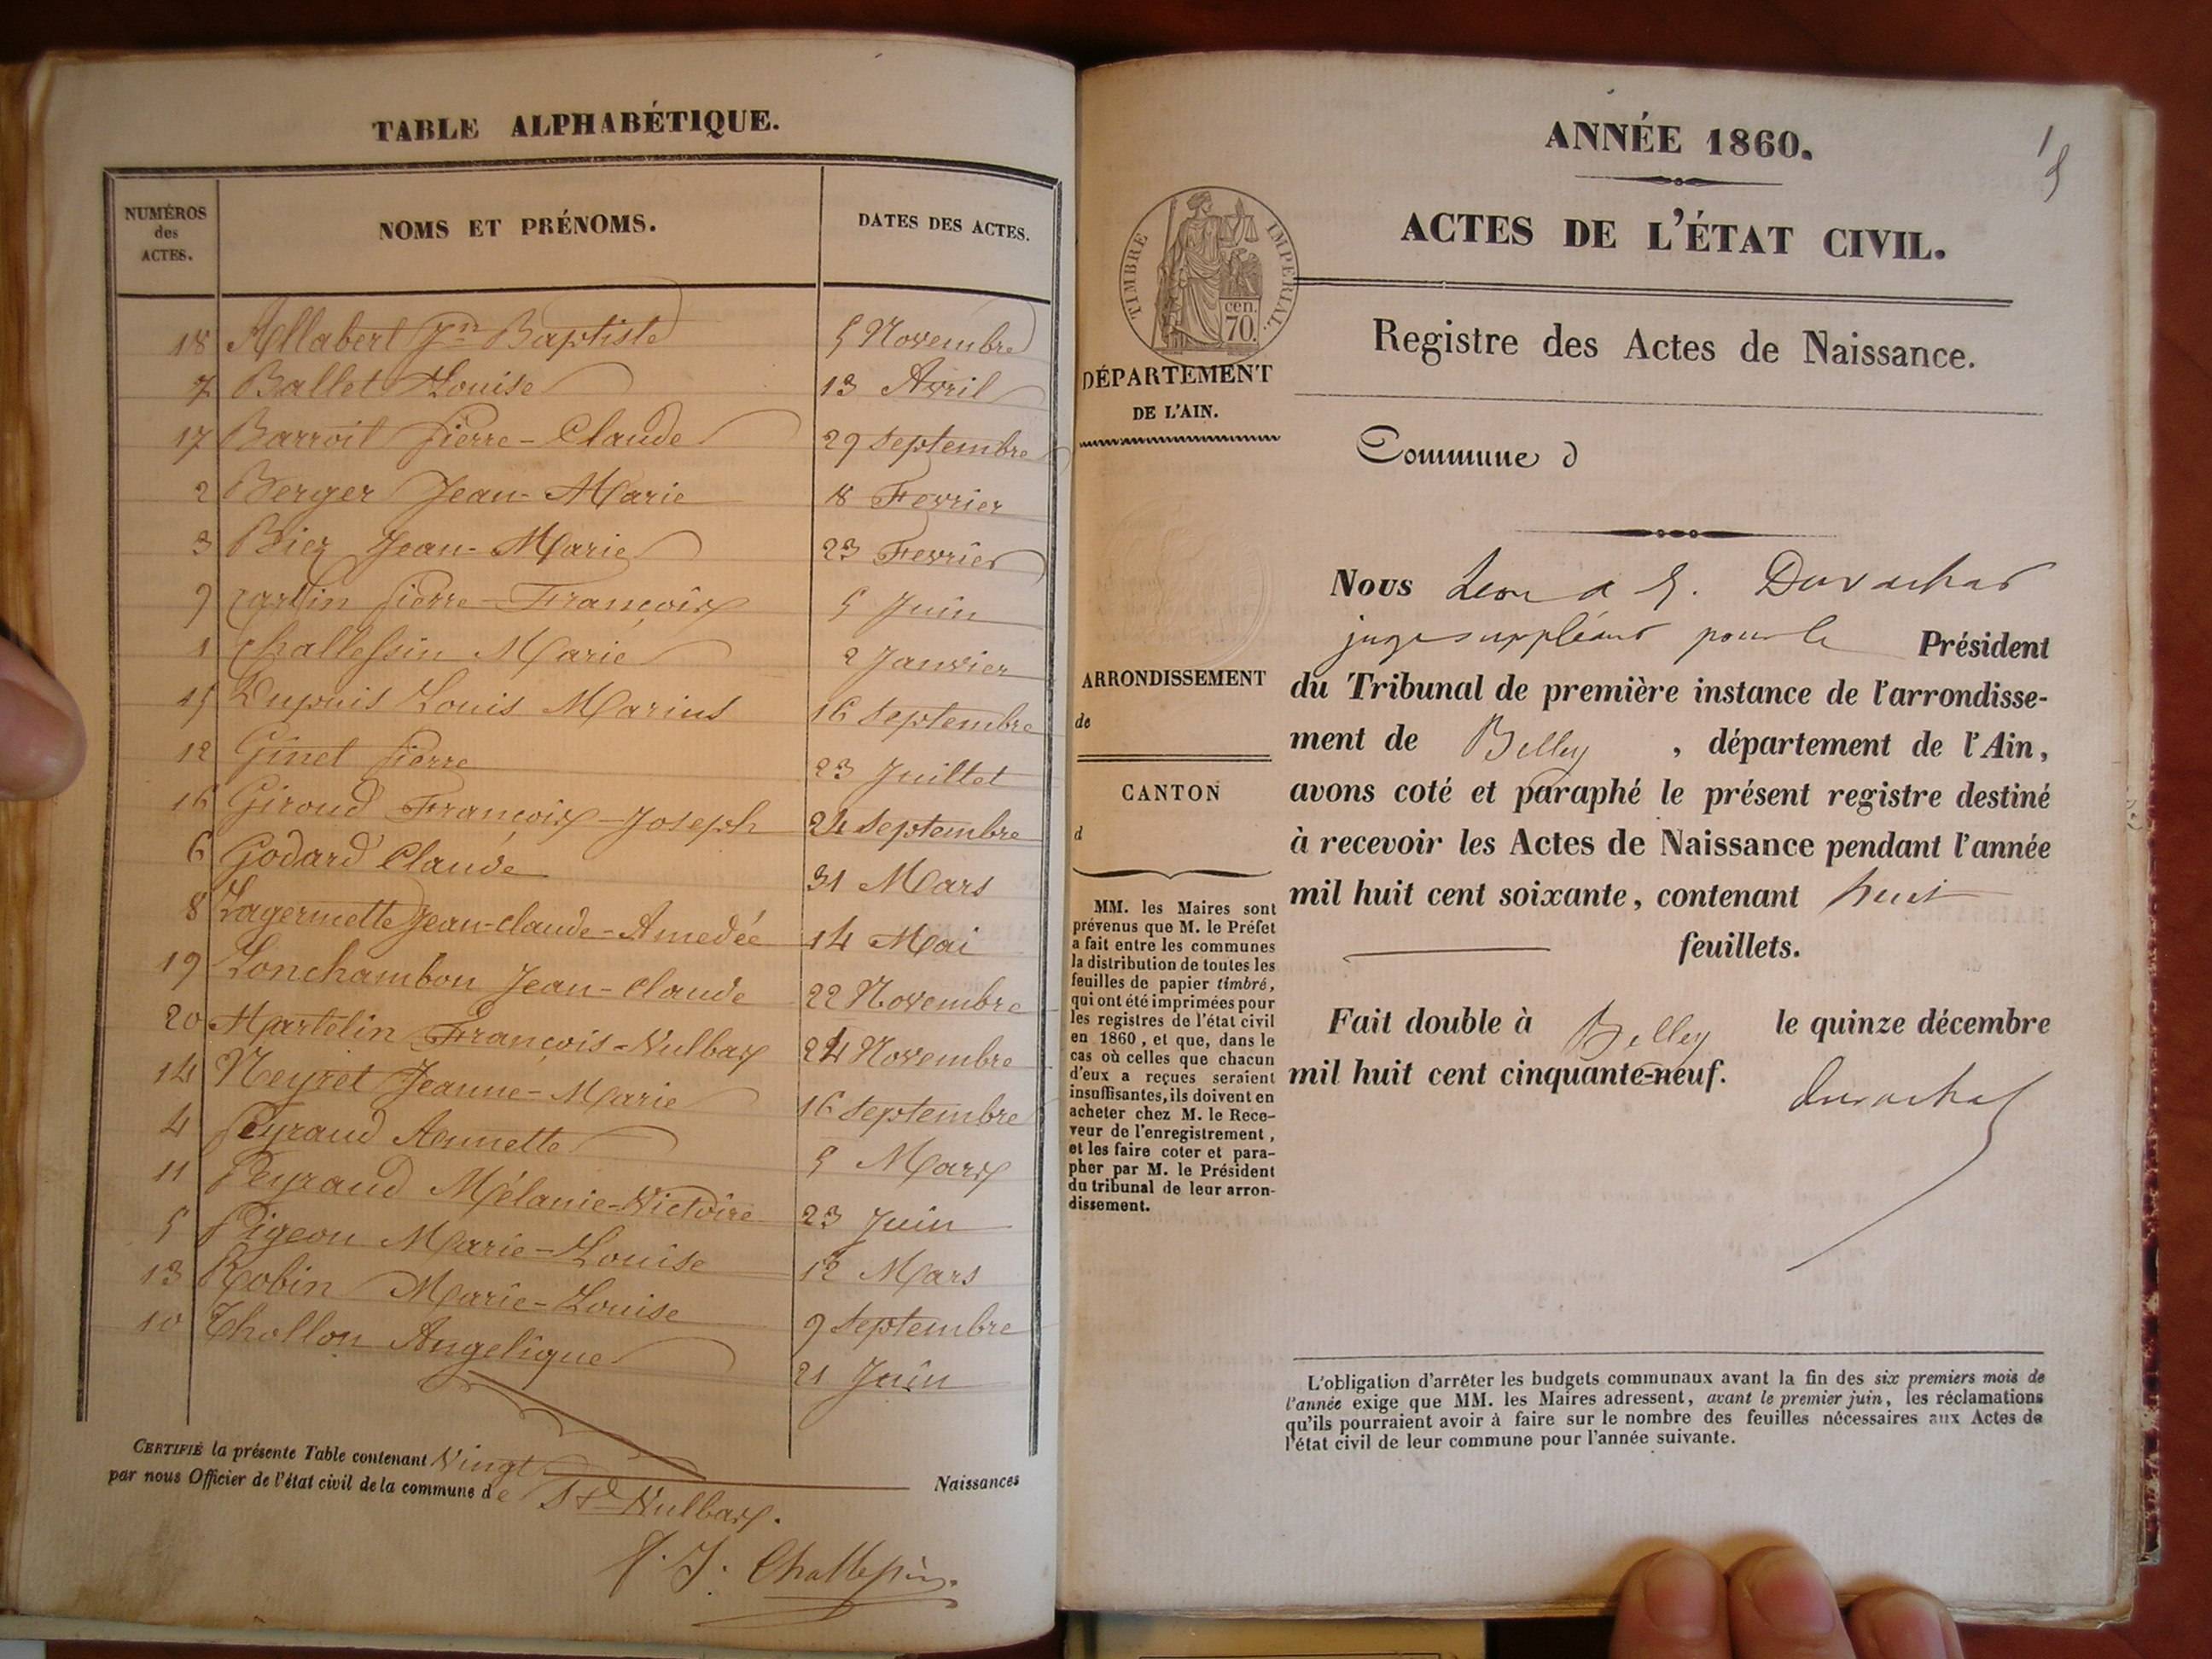 TABLE ALPHABÉTIQUE.
NUMÉROS des ACTES. NOMS ET PRÉNOMS. DATES DES ACTES.
18 Allabert Jn Baptiste 5 Novembre
7 Ballet Louise 13 Avril
17 Barroil Pierre-Claude 29 Septembre
2 Berger Jean-Marie 18 Fevrier
3 Biez Jean-Marie 23 Fevrier
9 Pierre-François 5 Juin
1 Challessin Marie 2 Janvier
15 Dupuis Louis Marius 16 Septembre
12 Ginet Pierre 23 Juillet
16 Giroud François-Joseph 24 Septembre
6 Godard Claude 31 Mars
8 Lagermette Jean-Claude-Amedée 14 Mai
19 Lonchambon Jean-Claude 22 Novembre
20 Martelin François-Vulbax 24 Novembre
14 Neyret Jeanne-Marie 16 Septembre
4 Peyraud Annette 5 Mars
11 Peyraud Mélanie-Victoire 23 Juin
5 Pigeon Marie-Louise 12 Mars
13 Robin Marie-Louise 9 Septembre
10 Thollon Angelique 21 Juin
CERTIFIÉ la présente Table contenant Vingt Naissances
par nous Officier de l'état civil de la commune de St Vulbax.
ANNÉE 1860.
ACTES DE L'ÉTAT CIVIL.
TIMBRE IMPERIAL.
cen.
70.
Registre des Actes de Naissance.
DÉPARTEMENT
DE L'AIN.
Commune d
Nous Duvachat
juge suppléant pour le Président
ARRONDISSEMENT
de
du Tribunal de première instance de l'arrondisse-
ment de Belley, département de l'Ain,
CANTON
d
avons coté et paraphé le présent registre destiné
à recevoir les Actes de Naissance pendant l'année
mil huit cent soixante, contenant huit
feuillets.
Fait double à Belley le quinze décembre
mil huit cent cinquante-neuf.
Duvachat
MM. les Maires sont
prévenus que M. le Préfet
a fait entre les communes
la distribution de toutes les
feuilles de papier timbré,
qui ont été imprimées pour
les registres de l'état civil
en 1860, et que, dans le
cas où celles que chacun
d'eux a reçues seraient
insuffisantes, ils doivent en
acheter chez M. le Rece-
veur de l'enregistrement,
et les faire coter et para-
pher par M. le Président
du tribunal de leur arron-
dissement.
L'obligation d'arrêter les budgets communaux avant la fin des six premiers mois de
l'année exige que MM. les Maires adressent, avant le premier juin, les réclamations
qu'ils pourraient avoir à faire sur le nombre des feuilles nécessaires aux Actes de
l'état civil de leur commune pour l'année suivante.